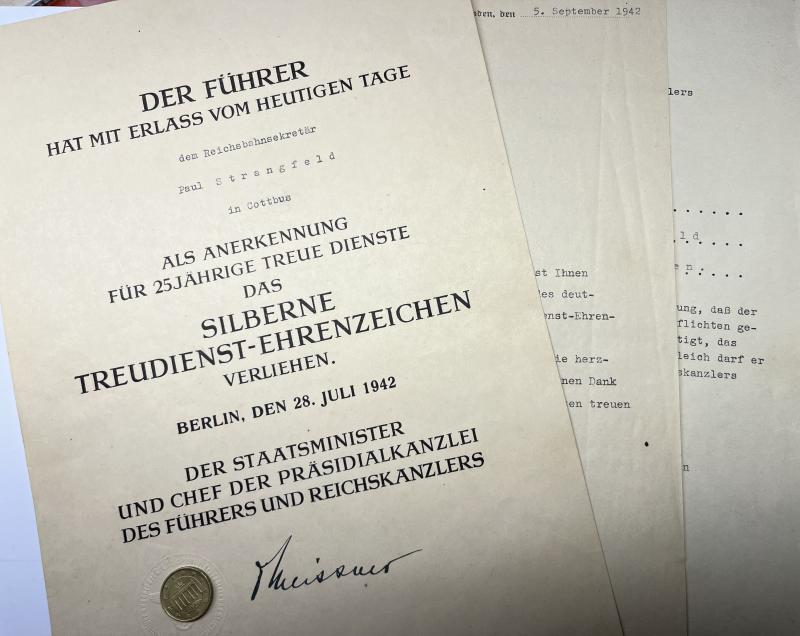 DER FÜHRER
HAT MIT ERLASS VOM HEUTIGEN TAGE
dem Reichsbahnsekretär
Paul Strangfeld
in Cottbus
ALS ANERKENNUNG
FÜR 25JÄHRIGE TREUE DIENSTE
DAS
SILBERNE
TREUDIENST-EHRENZEICHEN
VERLIEHEN.
BERLIN, DEN 28. JULI 1942
DER STAATSMINISTER
UND CHEF DER PRÄSIDIALKANZLEI
DES FÜHRERS UND REICHSKANZLERS
Meissner
den, den 5. September 1942
st Ihnen
des deut-
enst-Ehren-
ie herz-
nen Dank
en treuen
lers
ld
en.
ung, daß der
flichten ge-
tigt, das
leich darf er
skanzlers
n